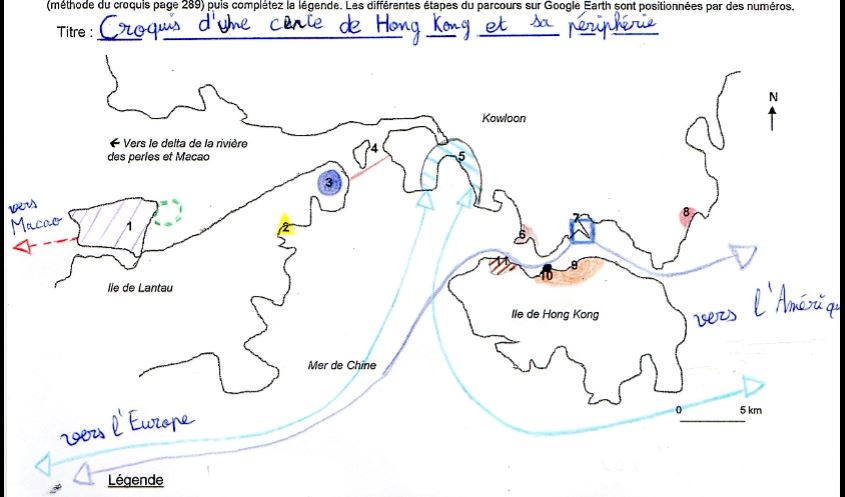 (méthode du croquis page 289) puis complétez la légende. Les différentes étapes du parcours sur Google Earth sont positionnées par des numéros.
Titre : Croquis d'une carte de Hong Kong et sa périphérie
N
Kowloon
← Vers le delta de la rivière
des perles et Macao
4
5
3
vers
Macao
1
2
7
8
6
11
9
10
Ile de Lantau
Ile de Hong Kong
vers l'Amériqu
Mer de Chine
0 5 km
vers l'Europe
Légende